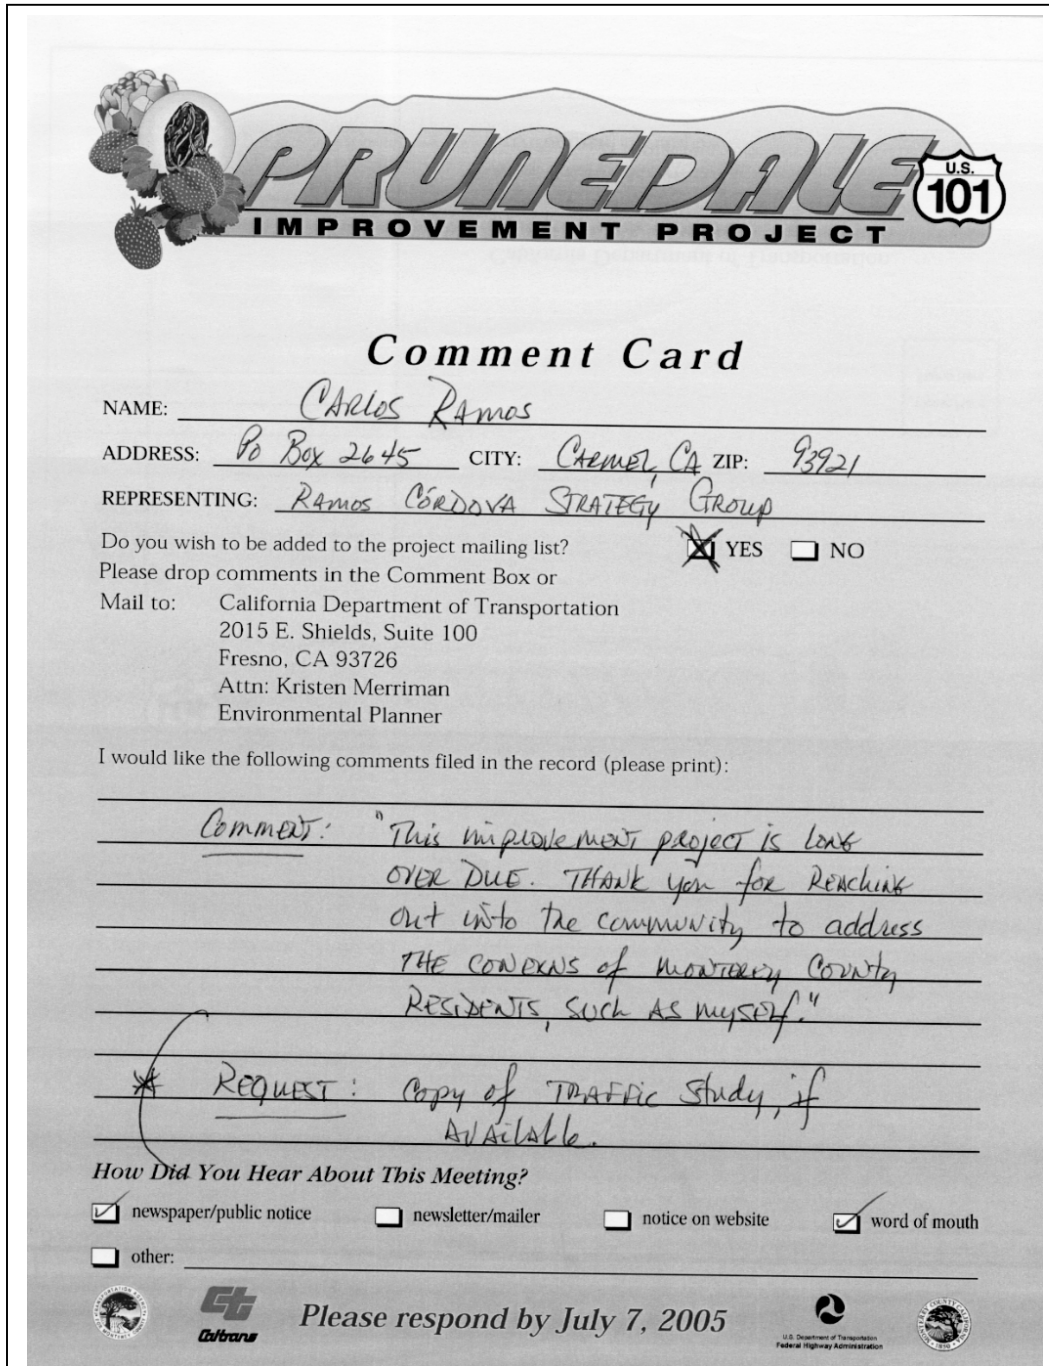 PRUNEDALE
U.S.
101
IMPROVEMENT PROJECT
Comment Card
NAME: CARLOS RAMOS
ADDRESS: PO Box 2645 CITY: CARMEL, CA ZIP: 93921
REPRESENTING: RAMOS CÓRDOVA STRATEGY GROUP
Do you wish to be added to the project mailing list? YES NO
Please drop comments in the Comment Box or
Mail to: California Department of Transportation
2015 E. Shields, Suite 100
Fresno, CA 93726
Attn: Kristen Merriman
Environmental Planner
I would like the following comments filed in the record (please print):
Comment: "This improvement project is long
over due. Thank you for reaching
out into the community to address
the conerns of Monterey County
residents, such as myself."
* Request: Copy of traffic study, if
available.
How Did You Hear About This Meeting?
newspaper/public notice newsletter/mailer notice on website word of mouth
other:
Caltrans
Please respond by July 7, 2005
U.S. Department of Transportation
Federal Highway Administration